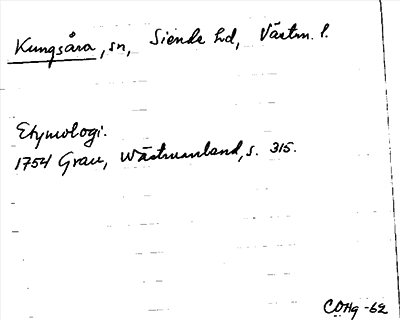 Kungsåra, sn, Siende hd, Västm. l.
Etymologi.
1754 Grau, Wästmanland, s. 315.
COHg -62